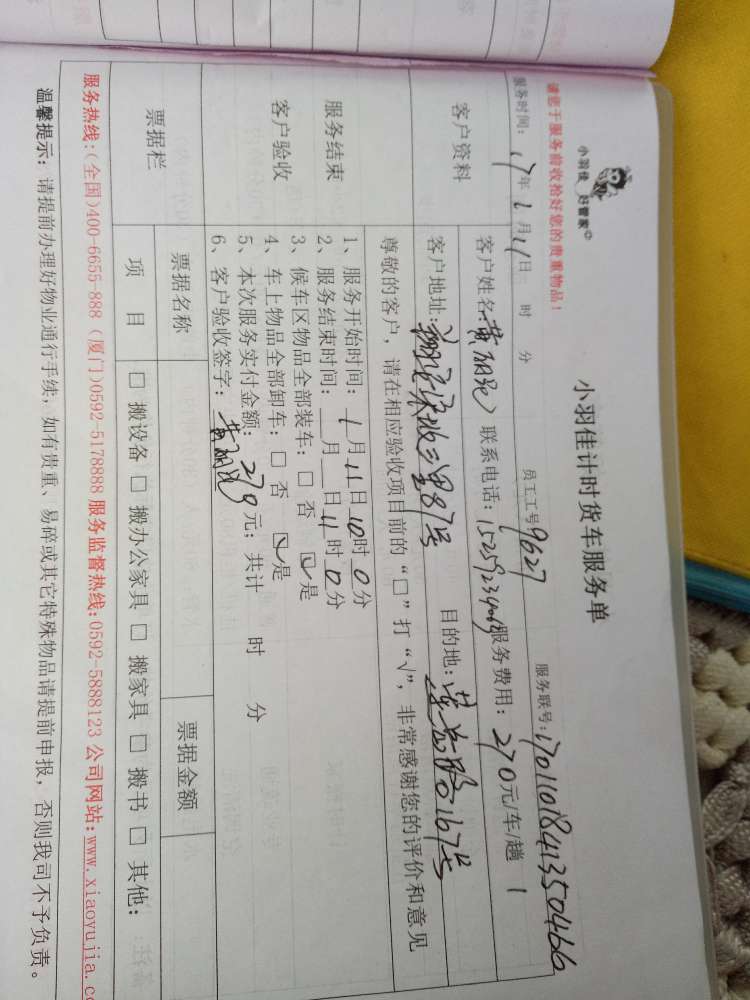 小羽佳 好管家
小羽佳计时货车服务单
请您于服务前收拾好您的贵重物品！
员工工号 9627 服务联号：1701101841350466
服务时间：17年1月11日 时 分
客户资料 客户姓名：黄丽 联系电话： 服务费用：270元/车/趟 1
客户地址： 287号 目的地：莲岳路167号
尊敬的客户，请在相应验收项目前的“□”打“√”，非常感谢您的评价和意见
服务结束
客户验收
1、服务开始时间：1月11日10时0分
2、服务结束时间：__月__日11时0分
3、候车区物品全部装车：□ 否 ☑是
4、车上物品全部卸车：□ 否 ☑是
5、本次服务实付金额：270元；共计 时 分
6、客户验收签字：黄丽
票据栏 票据名称 票据金额 元
项 目 □ 搬设备 □ 搬办公家具 □ 搬家具 □ 搬书 □ 其他：
服务热线：(全国)400-6655-888 (厦门)0592-5178888 服务监督热线：0592-5888123 公司网站：www.xiaoyujia.c
温馨提示：请提前办理好物业通行手续，如有贵重、易碎或其它特殊物品请提前申报，否则我司不予负责。